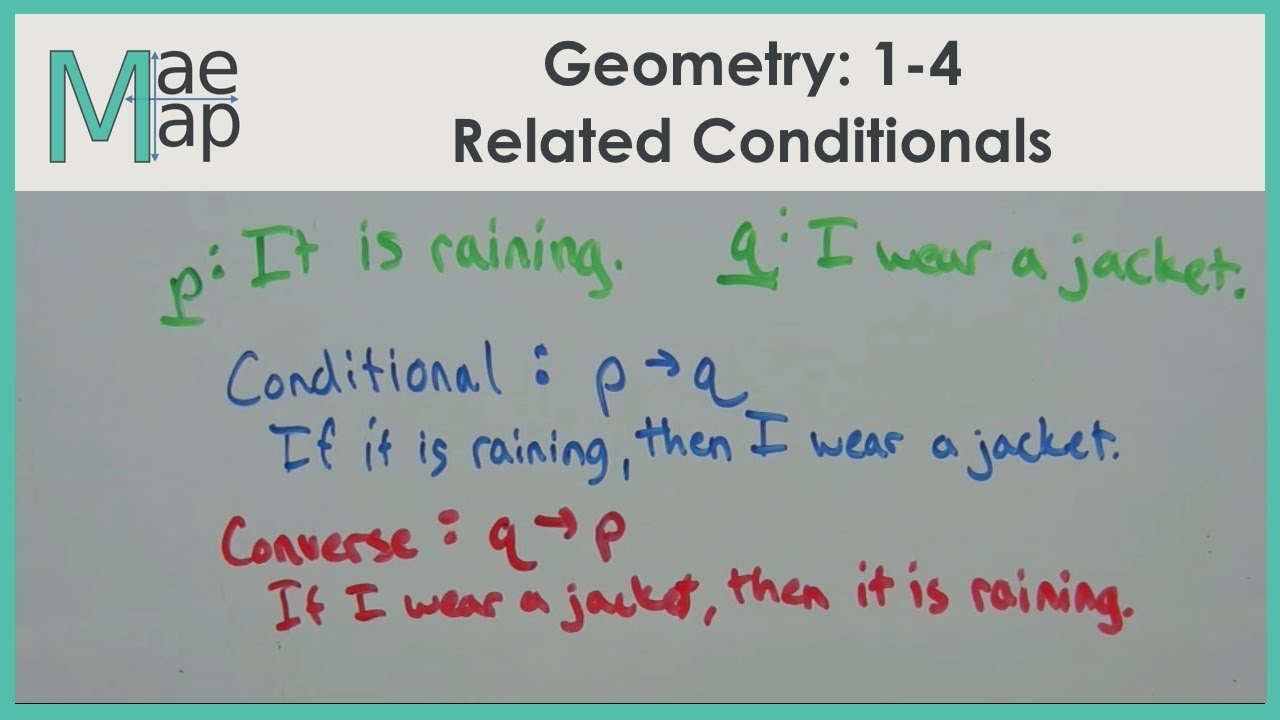 Mae
Map
Geometry: 1-4
Related Conditionals
p: It is raining. q: I wear a jacket.
Conditional: p → q
If it is raining, then I wear a jacket.
Converse: q → p
If I wear a jacket, then it is raining.